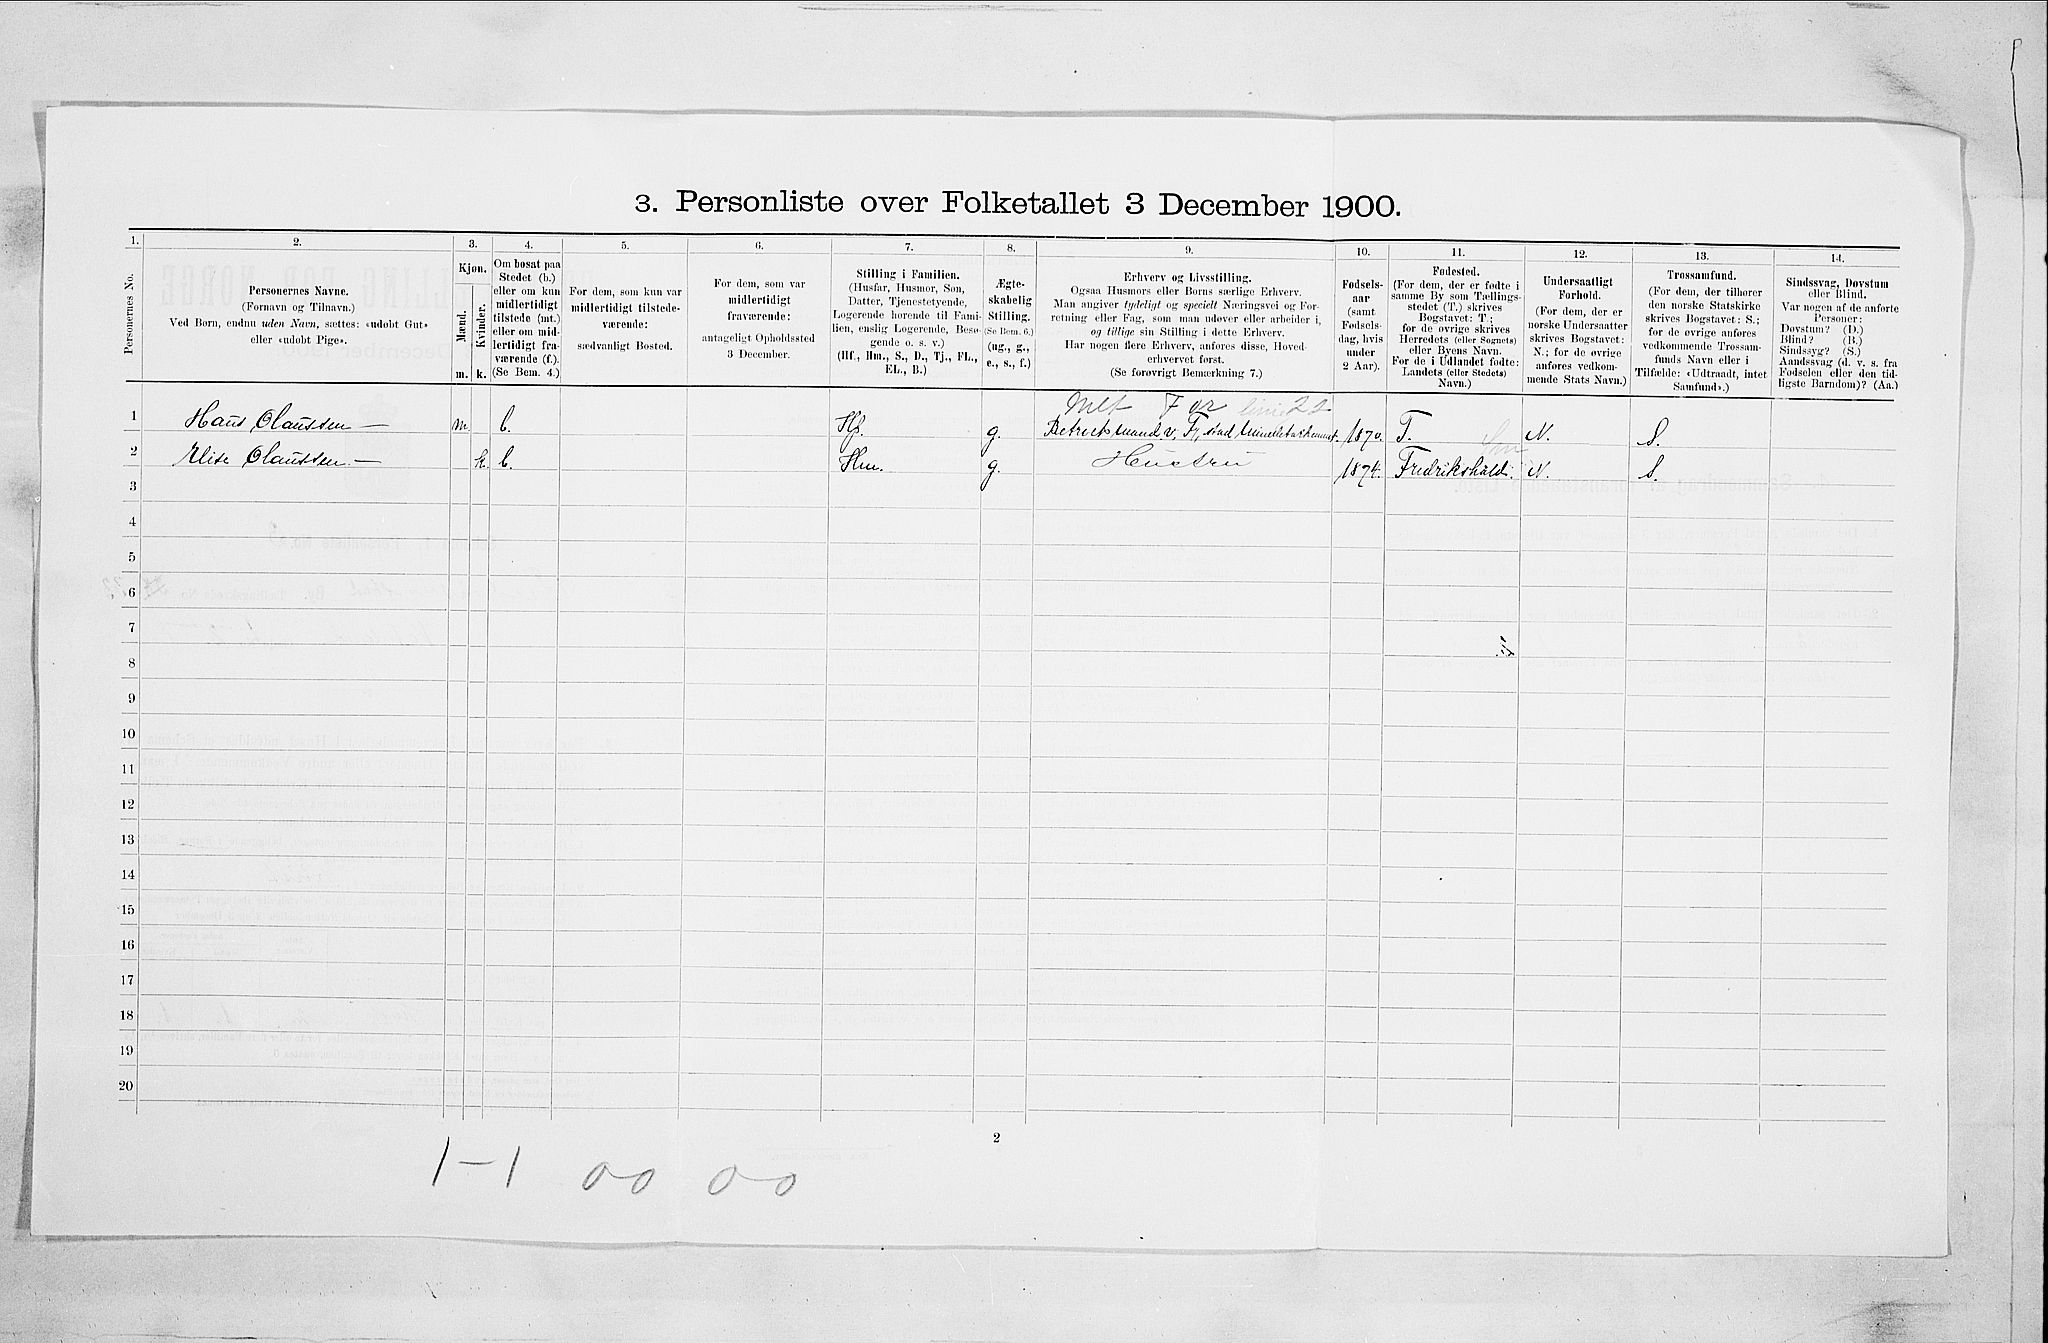 3. Personliste over Folketallet 3 December 1900.
1. 2. 3. 4. 5. 6. 7. 8. 9. 10. 11. 12. 13. 14.
Personernes No.
Personernes Navne.
(Fornavn og Tilnavn.)
Ved Børn, endnu uden Navn, sættes: «udøbt Gut»
eller «udøbt Pige».
Kjøn.
Mænd.
Kvinder.
m. k.
Om bosat paa
Stedet (b.)
eller om kun
midlertidigt
tilstede (mt.)
eller om mid-
lertidigt fra-
værende (f.)
(Se Bem. 4.)
For dem, som kun var
midlertidigt tilstede-
værende:
sædvanligt Bosted.
For dem, som var
midlertidigt
fraværende:
antageligt Opholdssted
3 December.
Stilling i Familien.
(Husfar, Husmor, Søn,
Datter, Tjenestetyende,
Logerende hørende til Fami-
lien, enslig Logerende, Besø-
gende o. s. v.)
(Hf., Hm., S., D., Tj., FL.,
EL., B.)
Ægte-
skabelig
Stilling.
(Se Bem. 6.)
(ug., g.,
e., s., f.)
Erhverv og Livsstilling.
Ogsaa Husmors eller Børns særlige Erhverv.
Man angiver tydeligt og specielt Næringsvei og For-
retning eller Fag, som man udøver eller arbeider i,
og tillige sin Stilling i dette Erhverv.
Har nogen flere Erhverv, anføres disse, Hoved-
erhvervet først.
(Se forøvrigt Bemærkning 7.)
Fødsels-
aar
(samt
Fødsels-
dag, hvis
under
2 Aar).
Fødested.
(For dem, der er fødte i
samme By som Tællings-
stedet (T.) skrives
Bogstavet: T.;
for de øvrige skrives
Herredets (eller Sognets)
eller Byens Navn.
For de i Udlandet fødte:
Landets (eller Stedets)
Navn.)
Undersaatligt
Forhold.
(For dem, der er
norske Undersaatter
skrives Bogstavet:
N.; for de øvrige
anføres vedkom-
mende Stats Navn.)
Trossamfund.
(For dem, der tilhører
den norske Statskirke
skrives Bogstavet: S.;
for de øvrige anføres
vedkommende Trossam-
funds Navn eller i
Tilfælde: «Udtraadt, intet
Samfund».)
Sindssvag, Døvstum
eller Blind.
Var nogen af de anførte
Personer:
Døvstum? (D.)
Blind? (B.)
Sindssyg? (S.)
Aandssvag (d. v. s. fra
Fødselen eller den tid-
ligste Barndom)? (Aa.)
1 Hans Claussen m. b. Hf. g. 1870. T. N. S.
2 Elise Claussen k. b. Hm. g. Hustru 1874. Fredrikshald. N. S.
3
4
5
6
7
8
9
10
11
12
13
14
15
16
17
18
19
20
2
1-1 00 00